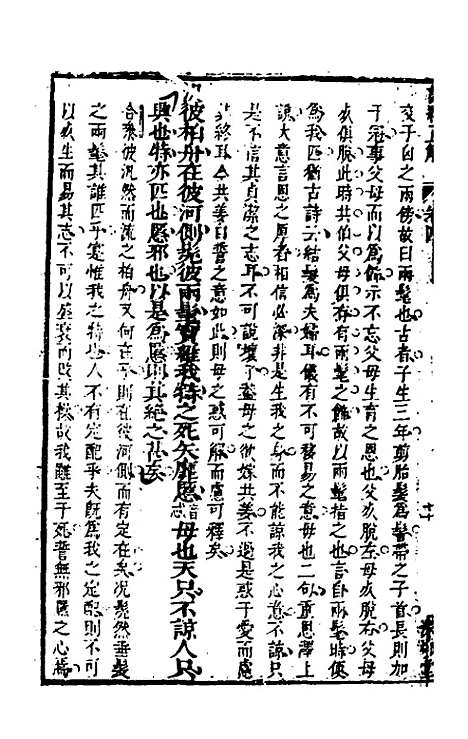 夾于囟之兩傍故曰兩髦也古者子生三年剪胎髮為鬌帶之子首長則加
于冠事父母而以為飾示不忘父母生育之恩也父歿脫左母歿脫右父母
歿俱脫此時共伯父母俱存有兩髦之飾故以兩髦指之也言自兩髦時便
為我匹猶古詩云結髮為夫婦耳儀有不可移易之意母也二句重恩深上
諒大意言恩之厚者相信必深非是生我之身而不能諒我之心意不諒只
是不信其貞潔之志耳不可說壞了蓋母之欲嫁共姜不過是惑于愛而慮
其終耳今共姜自誓之意如此則母之惑可解而慮可釋矣
彼柏舟在彼河側髧彼兩髦實維我特之死矢靡慝音志母也天只不諒人只
興也特亦匹也慝邪也以是為慝則其絕之甚矣
合泰彼汎然而流之柏舟又何在乎則在彼河側而有定在矣況髧然垂髮
之兩髦其誰匹乎寔惟我之特也人不有定配乎夫既為我之定配則不可
以歿生而易其志不可以盛衰而改其操故我雖至于死誓無邪慝之心焉